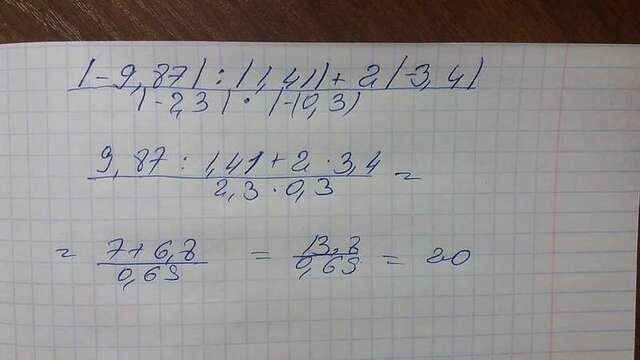 |-9,87| : |1,41| + 2|-3,4|
|-2,3| · |-0,3|
9,87 : 1,41 + 2 · 3,4 =
2,3 · 0,3
= 7+6,8 / 0,69 = 13,8 / 0,69 = 20